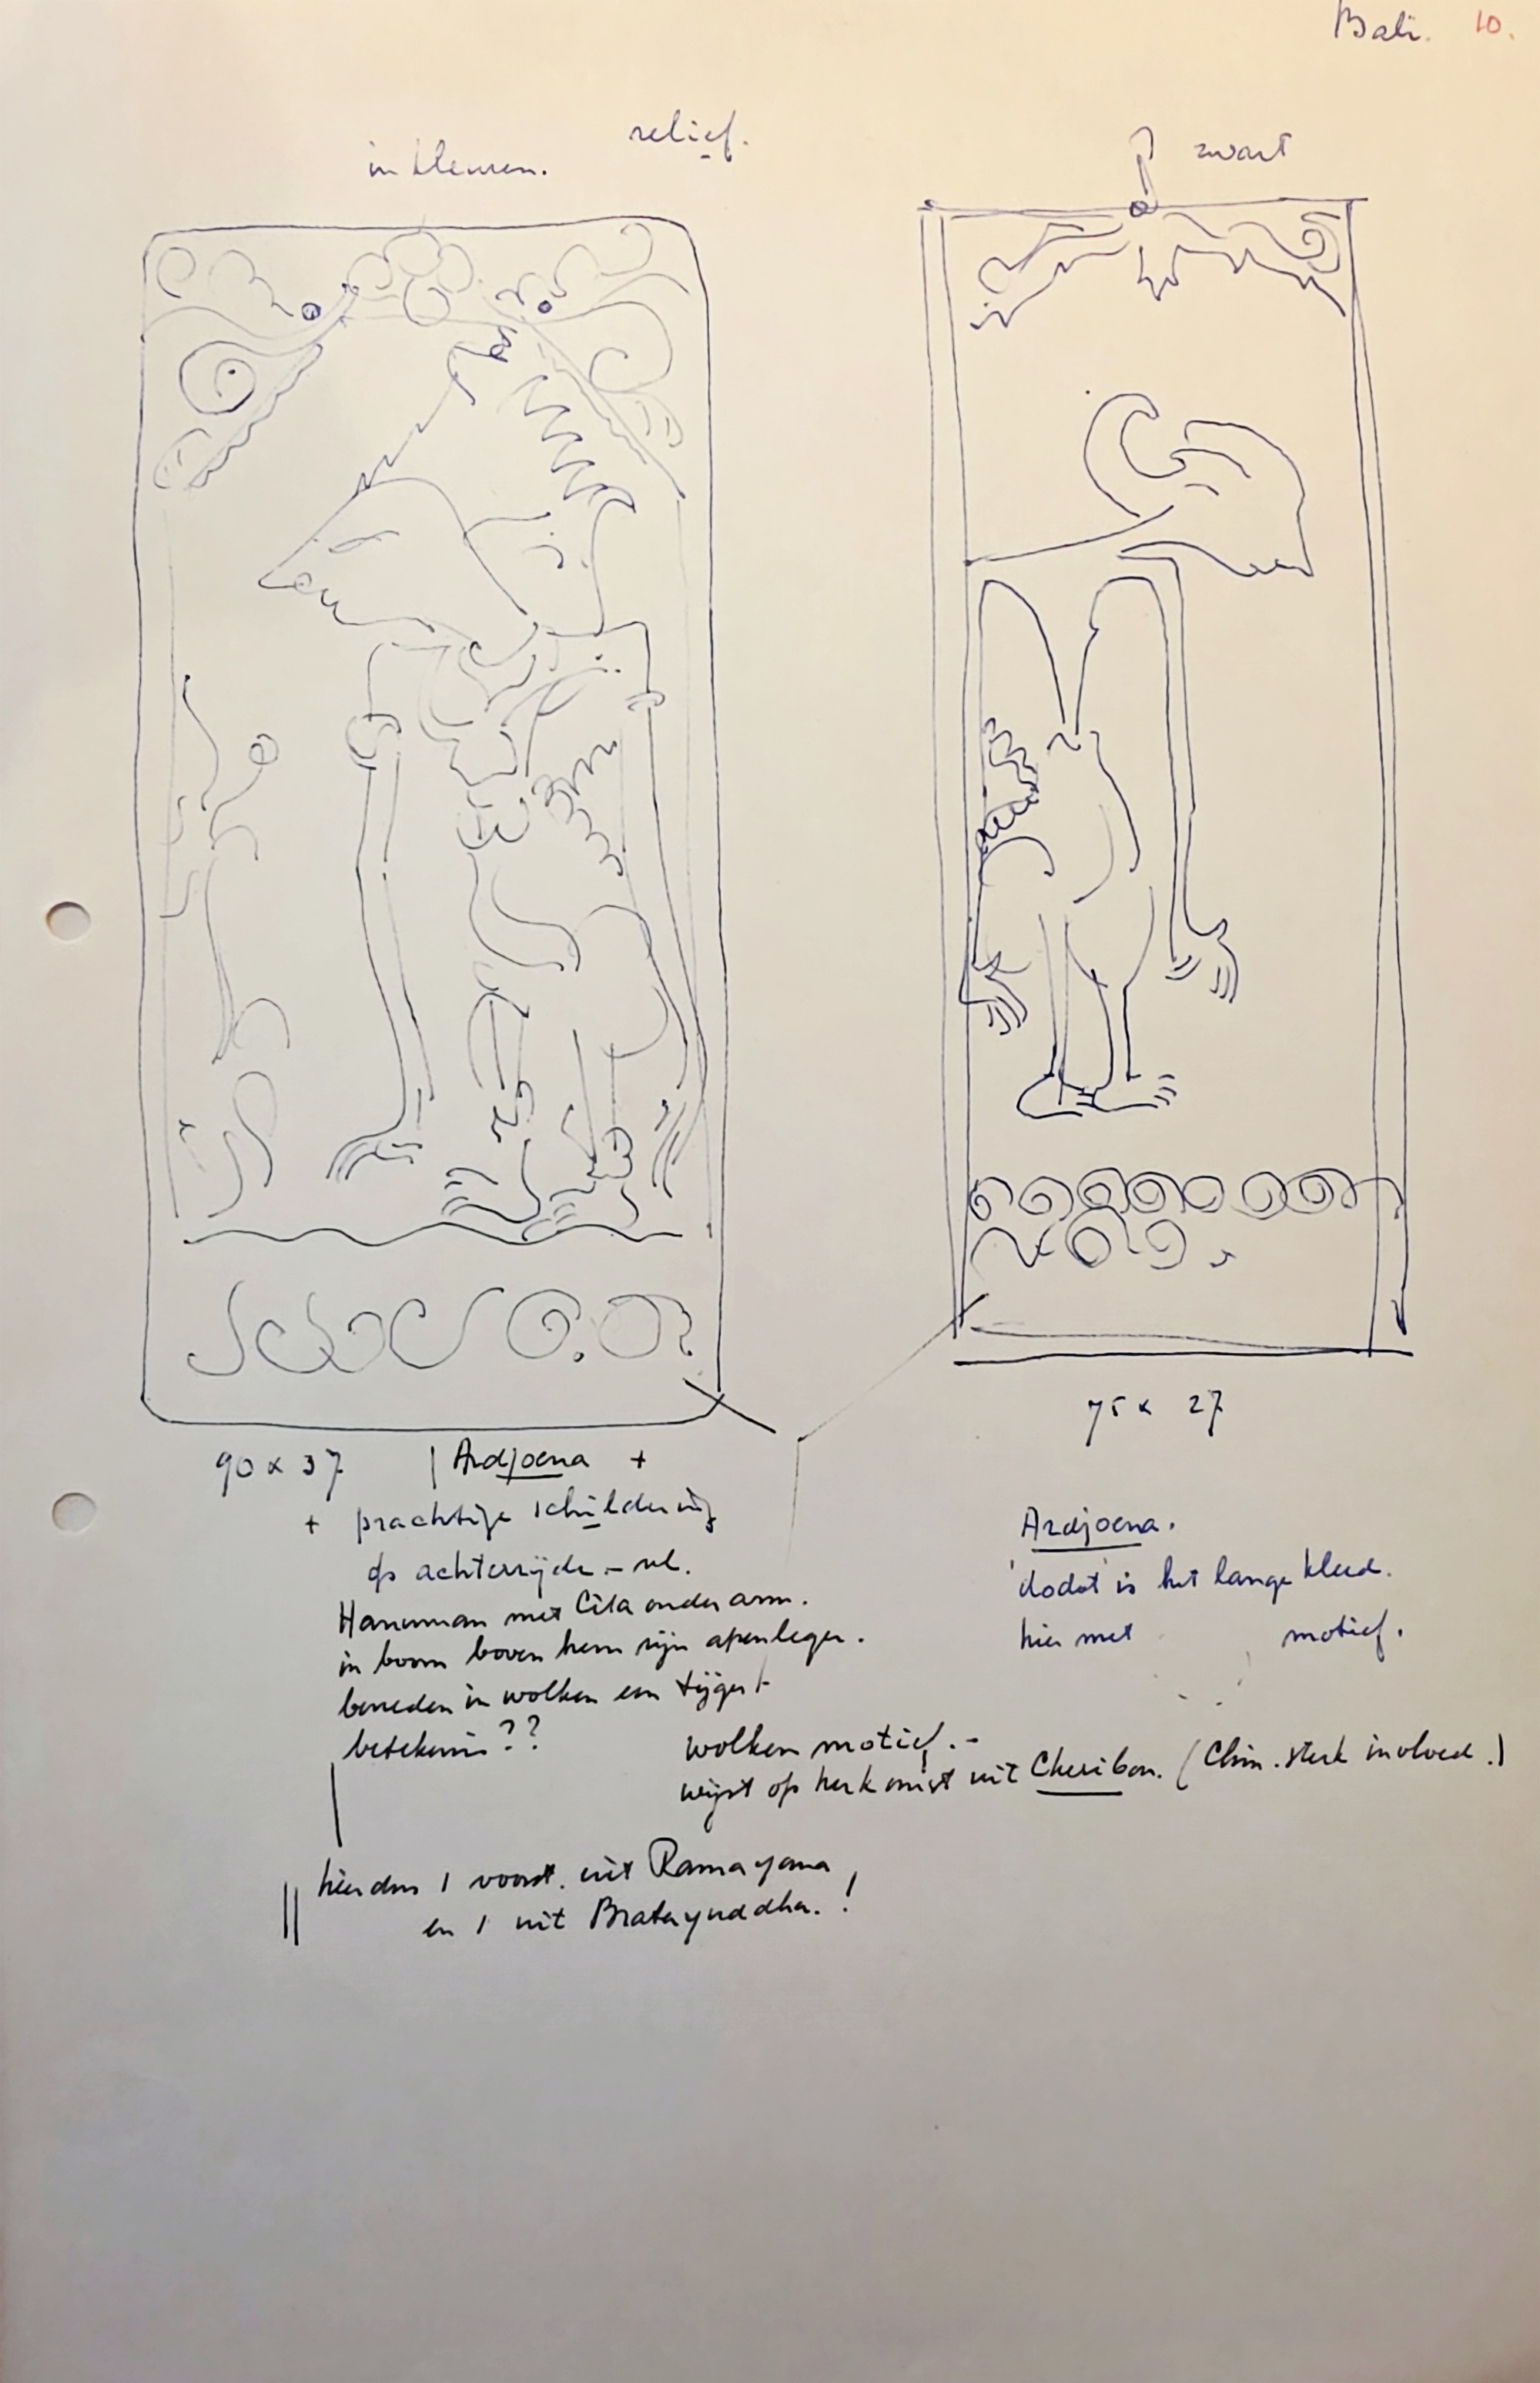 Bali. 10.
relief.
in kleuren.
zwart
90 x 37
Ardjoena +
+ prachtige schildering
op achterzijde - nl.
Hanuman met Cita onder arm.
in boom boven hem zijn apenleger.
beneden in wolken een tijger
betekenis??
75 x 27
Ardjoena.
'dodot' is het lange kleed.
hier met motief.
wolken motief. -
wijst op herkomst uit Cheribon. (Chin. sterk invloed.)
hierdus 1 voorst. uit Ramayana
en 1 uit Bratayuddha.!